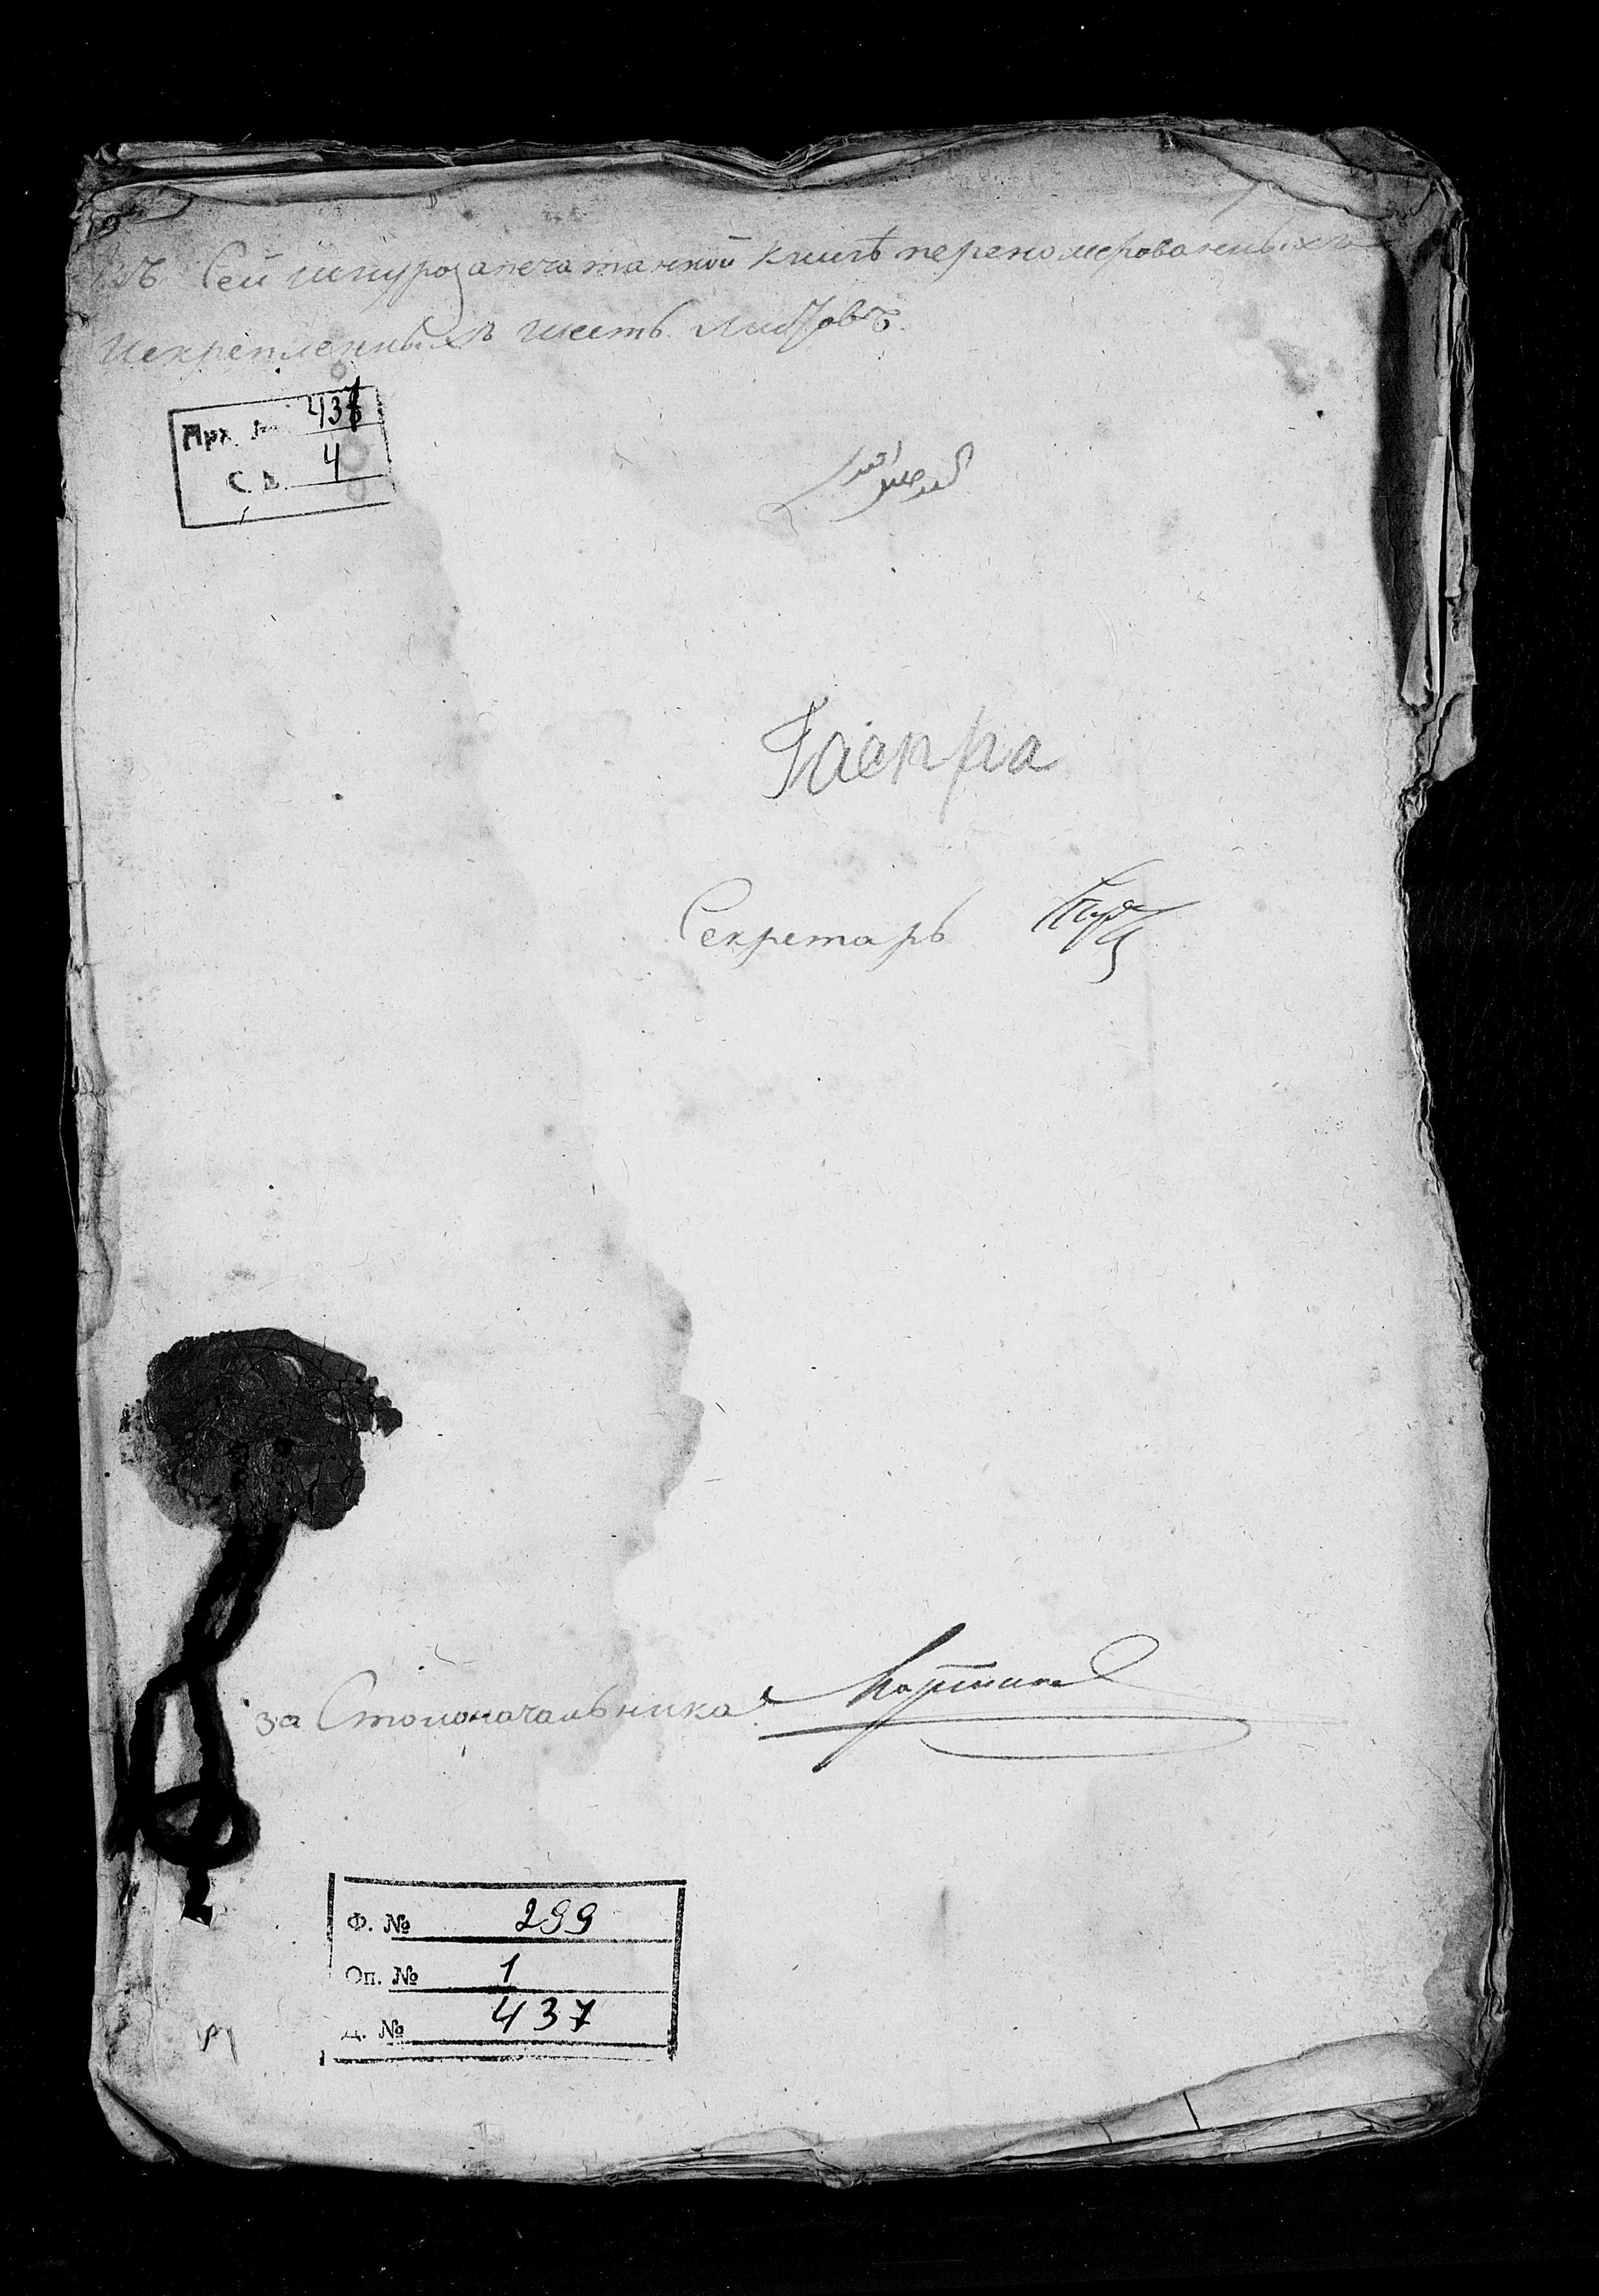 Въ сей шнурозапечатанной книгѣ переномерованныхъ
искрепленныхъ шесть листовъ.
Арх. № 437
С.В. 4
السيد خليل افندى
Гаспра
Секретарь
за Столоначальника
Ф. № 299
Оп. № 1
Д. № 437